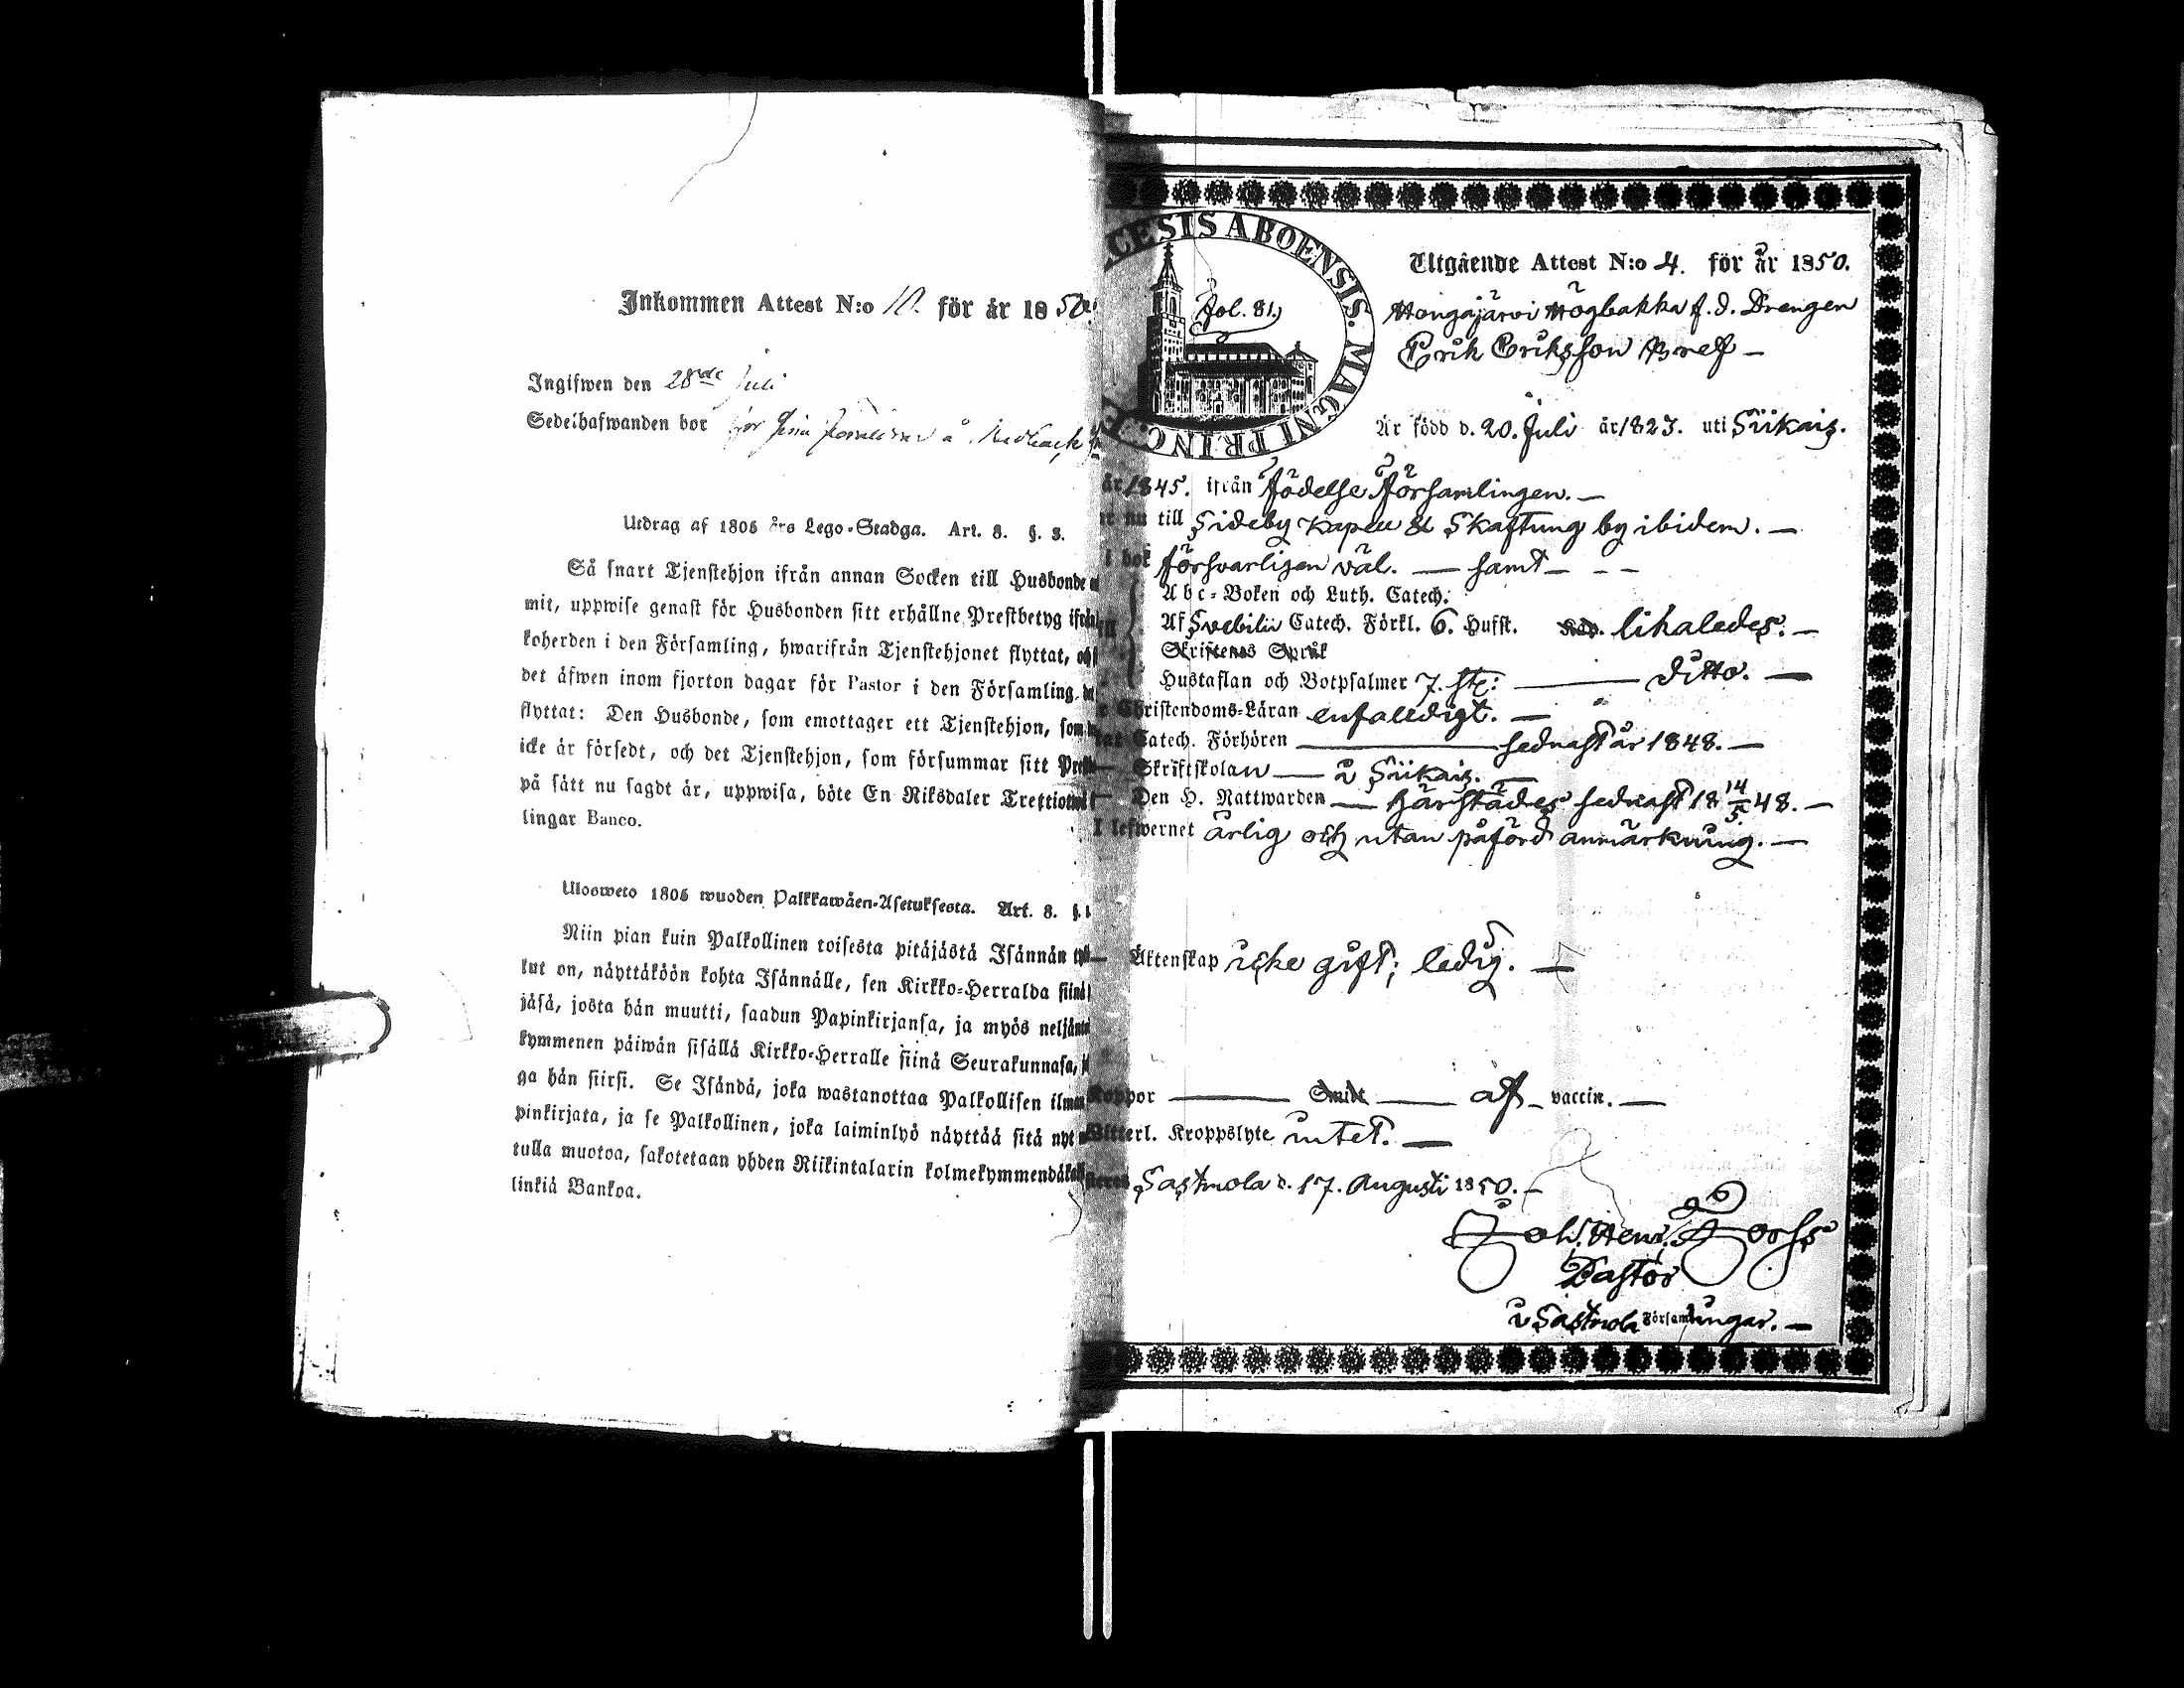 Inkommen Attest N:o 10. för år 1850
Ingifwen den 28de Juli
Sedelhafwanden bor
Utdrag af 1805 års Lego-Stadga. Art. 8. §. 3.
Så snart Tjenstehjon ifrån annan Socken till Husbonde
mit, uppwise genast för Husbonden sitt erhållne Prestbetyg ifrån
koherden i den Församling, hwarifrån Tjenstehjonet flyttat, och
det äfwen inom fjorton dagar för Pastor i den Församling
flyttat: Den Husbonde, som emottager ett Tjenstehjon, som
icke är försedt, och det Tjenstehjon, som försummar sitt Prest
på sätt nu sagdt är, uppwisa, böte En Riksdaler Trettiotwå
lingar Banco.
Ulosweto 1805 wuoden Palkkawäen-Asetuksesta. Art. 8. §.
Niin pian kuin Palkollinen toisesta pitäjästä Isännän
kut on, näyttäköön kohta Isännälle, sen Kirkko-Herralda siinä
jäsä, josta hän muutti, saadun Papinkirjansa, ja myös neljäntä
kymmenen päiwän sisällä Kirkko-Herralle siinä Seurakunnasa,
ga hän siirsi. Se Isändä, joka wastanottaa Palkollisen ilman
pinkirjata, ja se Palkollinen, joka laiminlyö näyttää sitä nyt
tulla muotoa, sakotetaan yhden Riikintalarin kolmekymmendäkahd
linkiä Bankoa.
CESIS ABOENSIS. MAGNI PRINC. F
Fol. 81.
Utgående Attest N:o 4. för år 1850.
Hongajärvi Högbakka f. d. Drengen
Erik Eriksson Bref —
Är född d. 20. Juli år 1823. uti Siikais.
år 1845. ifrån Födelse Församlingen. —
nu till Sideby Kapell & Skaftung by ibidem. —
i bok försvarligen väl. — samt — - -
Abc-Boken och Luth. Catech.
Af Svebilii Catech. Förkl. 6. Hufst. likaledes. —
Skriftenes Språk
Hustaflan och Botpsalmer 7. st: — ditto. —
Christendoms-Läran enfaldigt. —
Catech. Förhören — sednast år 1848. —
— Skriftskolan — i Siikais. —
— Den H. Nattwarden — härstädes sednast 18 14/5 48. —
I lefwernet ärlig och utan påförd anmärkning. —
— Äktenskap icke gift; ledig. —
Koppor — Smitt — af — vaccin. —
Ytterl. Kroppslyte intet. —
Sastmola d. 17. Augusti 1850. —
Joh. Henr. Forss
Pastor
i Sastmola Församlingar. —